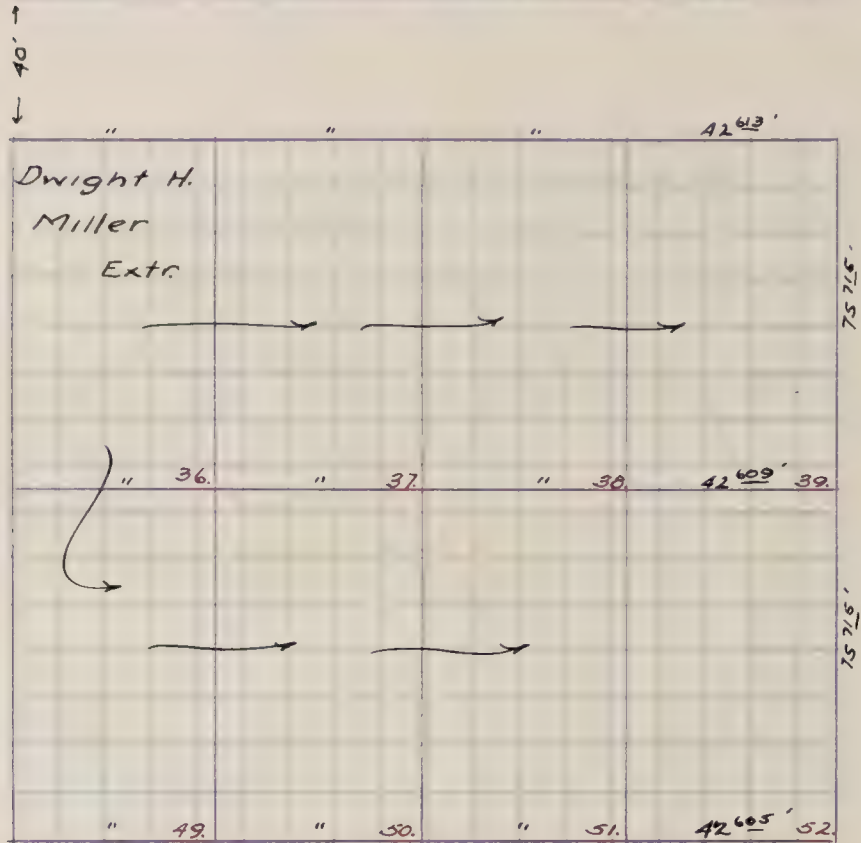 ← 40' →
" " " 42 613'
Dwight H.
Miller
Extr.
75 715'
" 36. " 37. " 38. 42 609' 39.
75 715'
" 49. " 50. " 51. 42 605' 52.